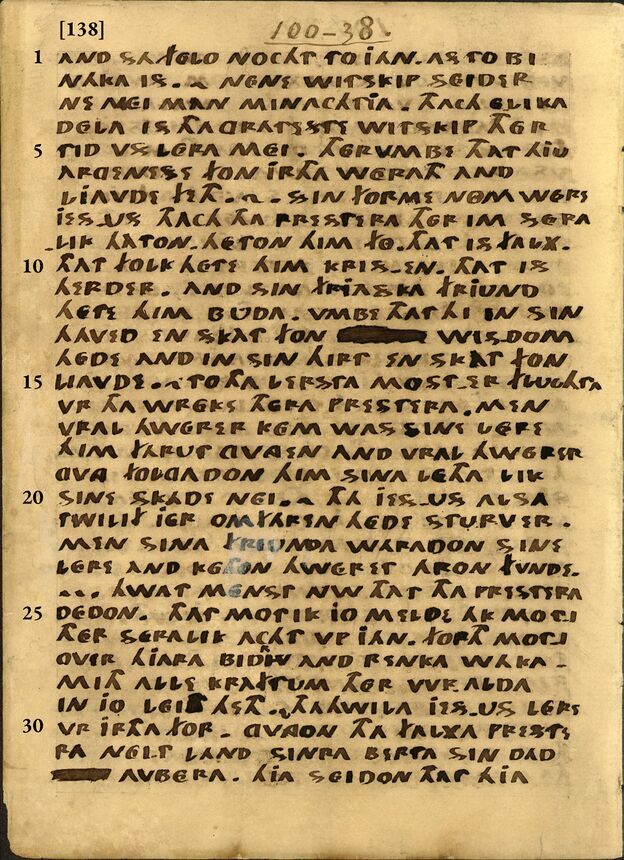 [138]
100-38.
1 AND SA FELO NOCHT TO JAN. AS TO BI
NAKA IS. ~ NENE WITSKIP SEIDER
NE MEI MAN MINACHTJA. THACH ELIKA
DELA IS THA GRATESTE WITSKIP THER
5 TID VS LERA MEI. THERVMBE THAT HJU
ARGENESSE FON JRTHA WERATH AND
LJAVDE FETH. ~. SIN FORME NOM WERE
JES_US THACH THA PRESTERA THER IM SERA
LIK HATON. HETON HIM FO. THAT IS FALX.
10 THAT FOLK HETE HIM KRIS_EN. THAT IS
HERDER. AND SIN FRIASKA FRIUND
HETE HIM BUDA. VMBE THAT HI IN SIN
HAVED EN SKAT FON WISDOM
HEDE AND IN SIN HIRT EN SKAT FON
15 LJAVDE. ~ TO THA LERSTA MOST_ER FLUCHTA
VR THA WREKE THERA PRESTERA. MEN
VRAL HWERER KEM WAS SINE LERE
HIM FARUT GVNGEN AND VRAL HWERER
GVNG FOLGADON HIM SINA LETHA LIK
20 SINE SKADE NEI. ~ THA JES_US ALSA
TWILIF JER OMFAREN HEDE STURVER.
MEN SINA FRIUNDA WARADON SINE
LERE AND KETHON HWERET ARON FUNDE.
~. HWAT MENST NW THAT THA PRESTERA
25 DEDON. THAT MOT IK JO MELDE AK MOTJ
THER SERALIK ACHT VP JAN. FORTH MOTJ
OVER HJARA BIDRIV AND RENKA WAKA
MITH ALLE KRAFTUM THER WR.ALDA
IN JO LEID HETH. ~ THAHWILA JES_US LERE
30 VR JRTHA FOR. GVNGON THA FALXA PRESTE
RA NEIT LAND SINRA BERTA SIN DAD
AVBERA. HJA SEIDON THAT HJA